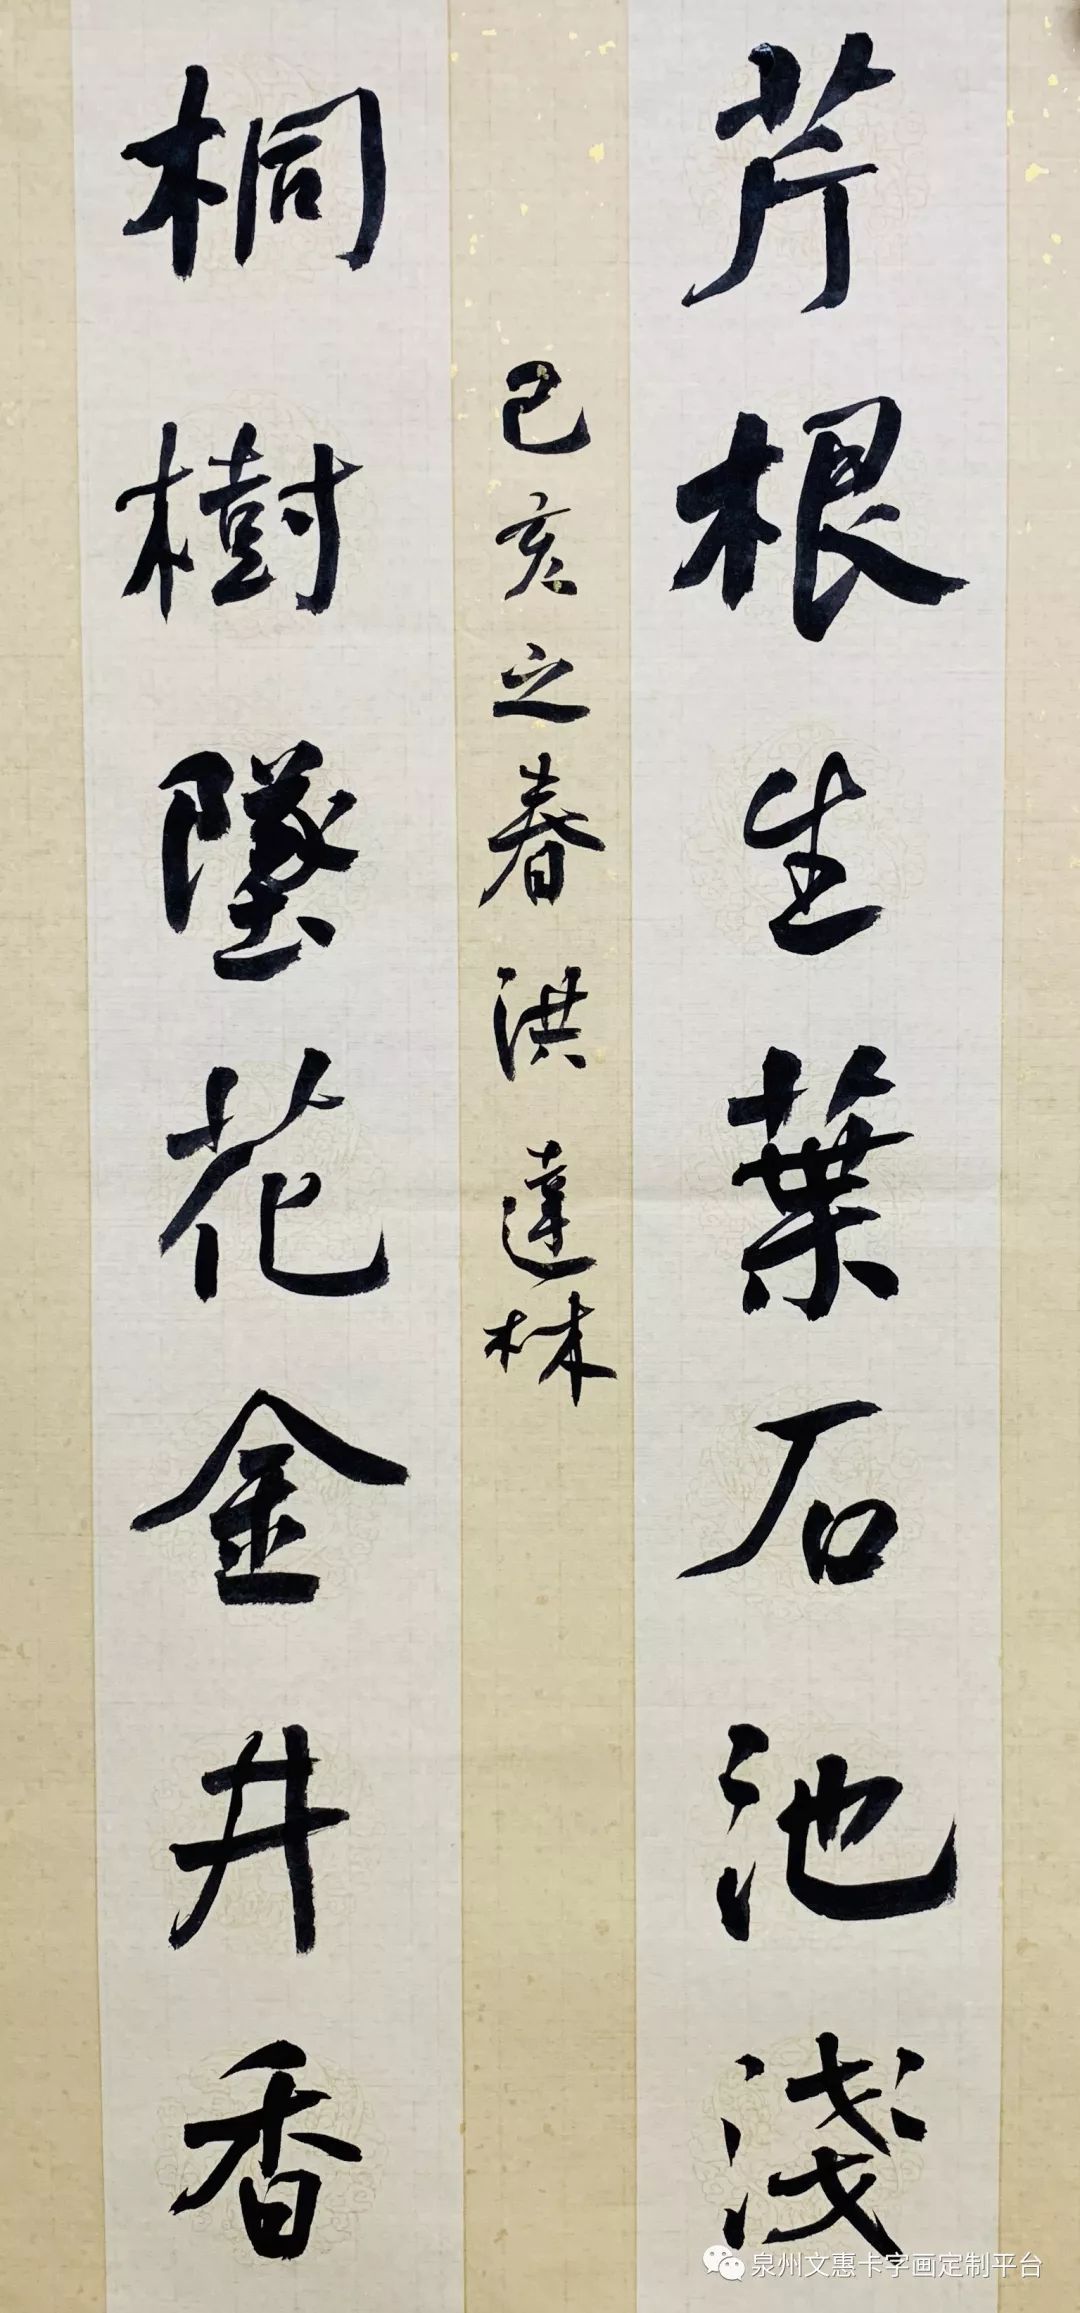 芹根生葉石池淺
己亥之春洪達林
桐樹墜花金井香
泉州文惠卡字画定制平台